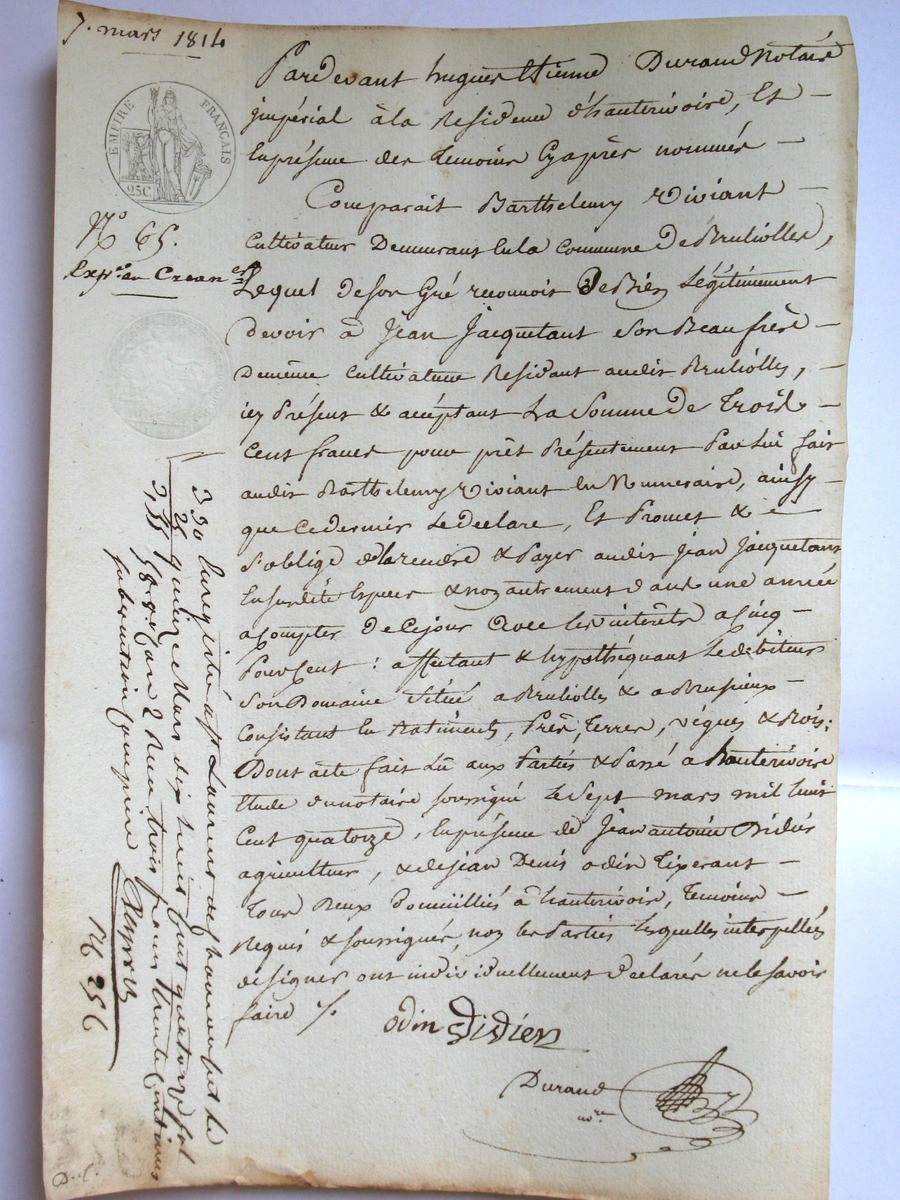 7. mars 1814
EMPIRE FRANÇAIS
25C
N.º 65.
Exp.on au Crean.er
Pardevant hugues Etienne Durand Notaire
jmpérial à la Residence d'hauterivoire, Et
Enprésence des temoins Cyaprès nommés
Comparait Barthelemy Viviant
Cultivateur Demeurant Enla Commune De Brulliolles,
Lequel de son Gré reconnoit & Bien Légitimement
devoir à Jean Jacquetant Son Beau frère
demême Cultivateur Residant audit Brulliolles,
icy Présent & acéptant La Somme De Trois
Cent francs pour prêt Présentement Par Lui fait
audit Barthelemy Viviant En Numeraire, ainsy
que Cedernier Le declare, Et Promet &
s'oblige dela rendre & Payer audit Jean Jacquetant
Ensusdite Espece & non autrement dans une année
a Compter De Cejour avec les intérêts a Cinq
Pour Cent : affectant & hypothéquant Ledebiteur
Son Domaine Situé a Brulliolles & a Brusieux
Consistant En Batiments, Près, Terres, vignes & Bois:
Dont acte fait Lû aux Parties & Passé a hauterivoire
Etude dunotaire soussigné Le Sept mars mil huit
Cent quatorze, Enprésence de Jean antoine Didier
agriculteur, & de jean Denis odin Tixerant
Tous Deux Domiciliés à hauterivoire, Temoins
Requis & soussignés, non les Parties lesquelles interpellées
designer ont individuellement declarés nele Savoir
faire ./.
odin Didier
Durand
no.re
3 30 Enregistré à St Laurent de chamousset le
25 quinze Mars dix huit Cent quatorze fol
3,55 58 r.o Case 2 Reçu trois francs trente Centimes
subvention comprise
16 256
D.. C.